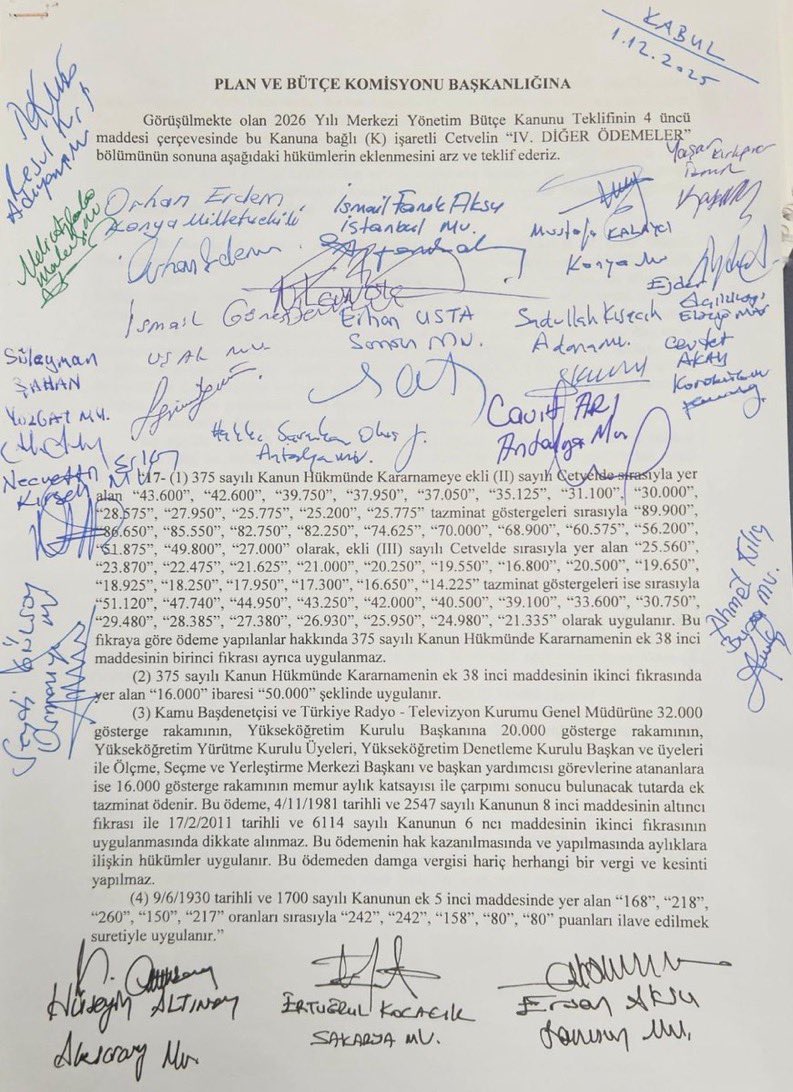 KABUL
1.12.2025
PLAN VE BÜTÇE KOMİSYONU BAŞKANLIĞINA
Görüşülmekte olan 2026 Yılı Merkezi Yönetim Bütçe Kanunu Teklifinin 4 üncü
maddesi çerçevesinde bu Kanuna bağlı (K) işaretli Cetvelin “IV. DİĞER ÖDEMELER”
bölümünün sonuna aşağıdaki hükümlerin eklenmesini arz ve teklif ederiz.
Orhan Erdem
Konya Milletvekili
İsmail Faruk Aksu
İstanbul Mv.
Mustafa KALAYCI
Konya Mv
Erhan USTA
Samsun Mv.
Sadullah Kısacık
Adana Mv.
Cevdet
AKAY
İsmail
UŞAK Mv.
Süleyman
ŞAHAN
YOZGAT MV.
Cavit ARI
Antalya Mv
Antalya Mv.
“17- (1) 375 sayılı Kanun Hükmünde Kararnameye ekli (II) sayılı Cetvelde sırasıyla yer
alan “43.600”, “42.600”, “39.750”, “37.950”, “37.050”, “35.125”, “31.100”, “30.000”,
“28.575”, “27.950”, “25.775”, “25.200”, “25.775” tazminat göstergeleri sırasıyla “89.900”,
“86.650”, “85.550”, “82.750”, “82.250”, “74.625”, “70.000”, “68.900”, “60.575”, “56.200”,
“51.875”, “49.800”, “27.000” olarak, ekli (III) sayılı Cetvelde sırasıyla yer alan “25.560”,
“23.870”, “22.475”, “21.625”, “21.000”, “20.250”, “19.550”, “16.800”, “20.500”, “19.650”,
“18.925”, “18.250”, “17.950”, “17.300”, “16.650”, “14.225” tazminat göstergeleri ise sırasıyla
“51.120”, “47.740”, “44.950”, “43.250”, “42.000”, “40.500”, “39.100”, “33.600”, “30.750”,
“29.480”, “28.385”, “27.380”, “26.930”, “25.950”, “24.980”, “21.335” olarak uygulanır. Bu
fıkraya göre ödeme yapılanlar hakkında 375 sayılı Kanun Hükmünde Kararnamenin ek 38 inci
maddesinin birinci fıkrası ayrıca uygulanmaz.
(2) 375 sayılı Kanun Hükmünde Kararnamenin ek 38 inci maddesinin ikinci fıkrasında
yer alan “16.000” ibaresi “50.000” şeklinde uygulanır.
(3) Kamu Başdenetçisi ve Türkiye Radyo - Televizyon Kurumu Genel Müdürüne 32.000
gösterge rakamının, Yükseköğretim Kurulu Başkanına 20.000 gösterge rakamının,
Yükseköğretim Yürütme Kurulu Üyeleri, Yükseköğretim Denetleme Kurulu Başkan ve üyeleri
ile Ölçme, Seçme ve Yerleştirme Merkezi Başkanı ve başkan yardımcısı görevlerine atananlara
ise 16.000 gösterge rakamının memur aylık katsayısı ile çarpımı sonucu bulunacak tutarda ek
tazminat ödenir. Bu ödeme, 4/11/1981 tarihli ve 2547 sayılı Kanunun 8 inci maddesinin altıncı
fıkrası ile 17/2/2011 tarihli ve 6114 sayılı Kanunun 6 ncı maddesinin ikinci fıkrasının
uygulanmasında dikkate alınmaz. Bu ödemenin hak kazanılmasında ve yapılmasında aylıklara
ilişkin hükümler uygulanır. Bu ödemeden damga vergisi hariç herhangi bir vergi ve kesinti
yapılmaz.
(4) 9/6/1930 tarihli ve 1700 sayılı Kanunun ek 5 inci maddesinde yer alan “168”, “218”,
“260”, “150”, “217” oranları sırasıyla “242”, “242”, “158”, “80”, “80” puanları ilave edilmek
suretiyle uygulanır.”
Ahmet Kılıç
Bursa Mv.
Hüseyin ALTINSOY
Aksaray Mv.
ERTUĞRUL KOCACIK
SAKARYA MV.
Ersan AKSU
Samsun Mv.